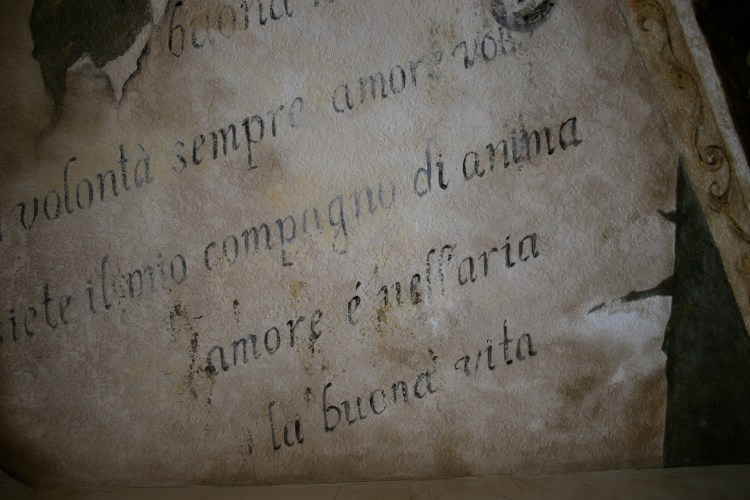 buona
volontà sempre amore voi
siete il mio compagno di anima
l'amore é nell'aria
la buona vita